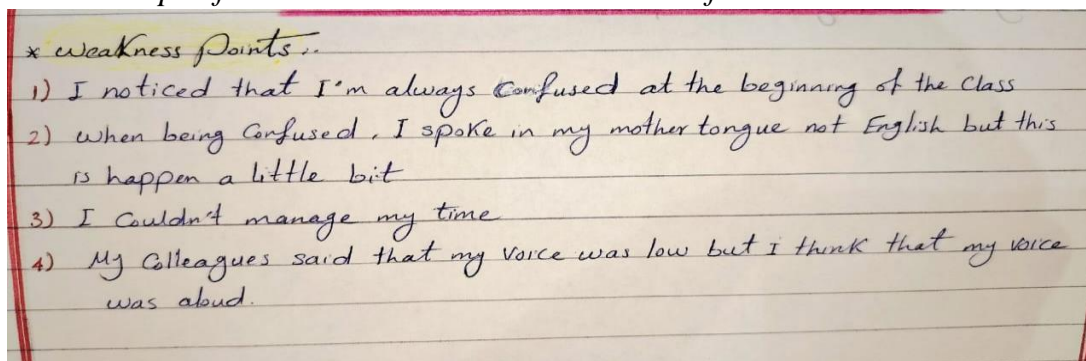 * Weakness Points..
1) I noticed that I'm always Confused at the beginning of the Class
2) when being Confused, I spoke in my mother tongue not English but this
is happen a little bit
3) I Couldn't manage my time
4) My Colleagues said that my Voice was low but i think that my voice
was aloud.